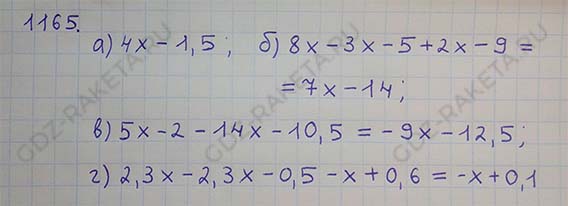 1165.
а) 4x - 1,5; б) 8x - 3x - 5 + 2x - 9 =
= 7x - 14;
в) 5x - 2 - 14x - 10,5 = -9x - 12,5;
г) 2,3x - 2,3x - 0,5 - x + 0,6 = -x + 0,1
GDZ-RAKETA.RU
GDZ-RAKETA.RU
GDZ-RAKETA.RU
GDZ-RAKETA.RU